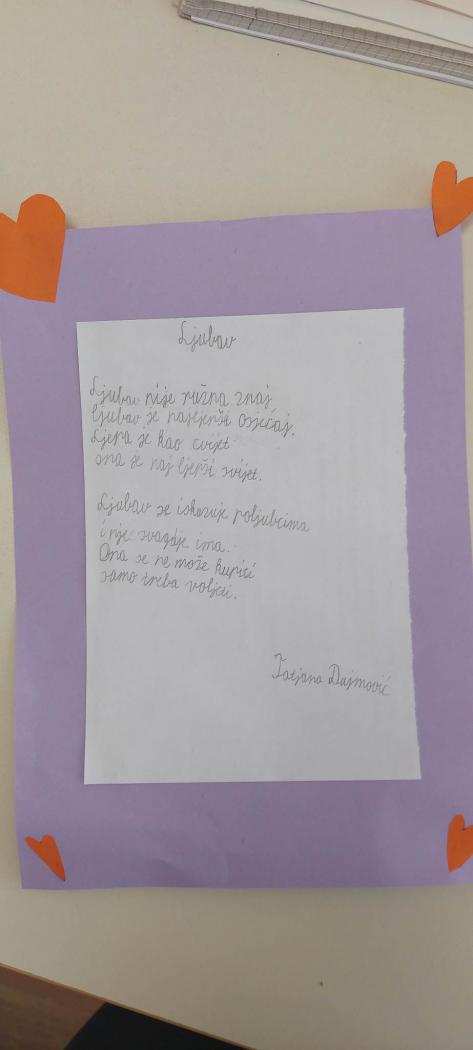 Ljubav
Ljubav nije ružna znaj
ljubav je najljepši osjećaj.
Ljepa je kao cvijet
ona je naj ljepši svijet.
Ljubav se iskazuje poljubcima
i nje svagdje ima.
Ona se ne može kupiti
samo treba voljeti.
Tatjana Dujmović